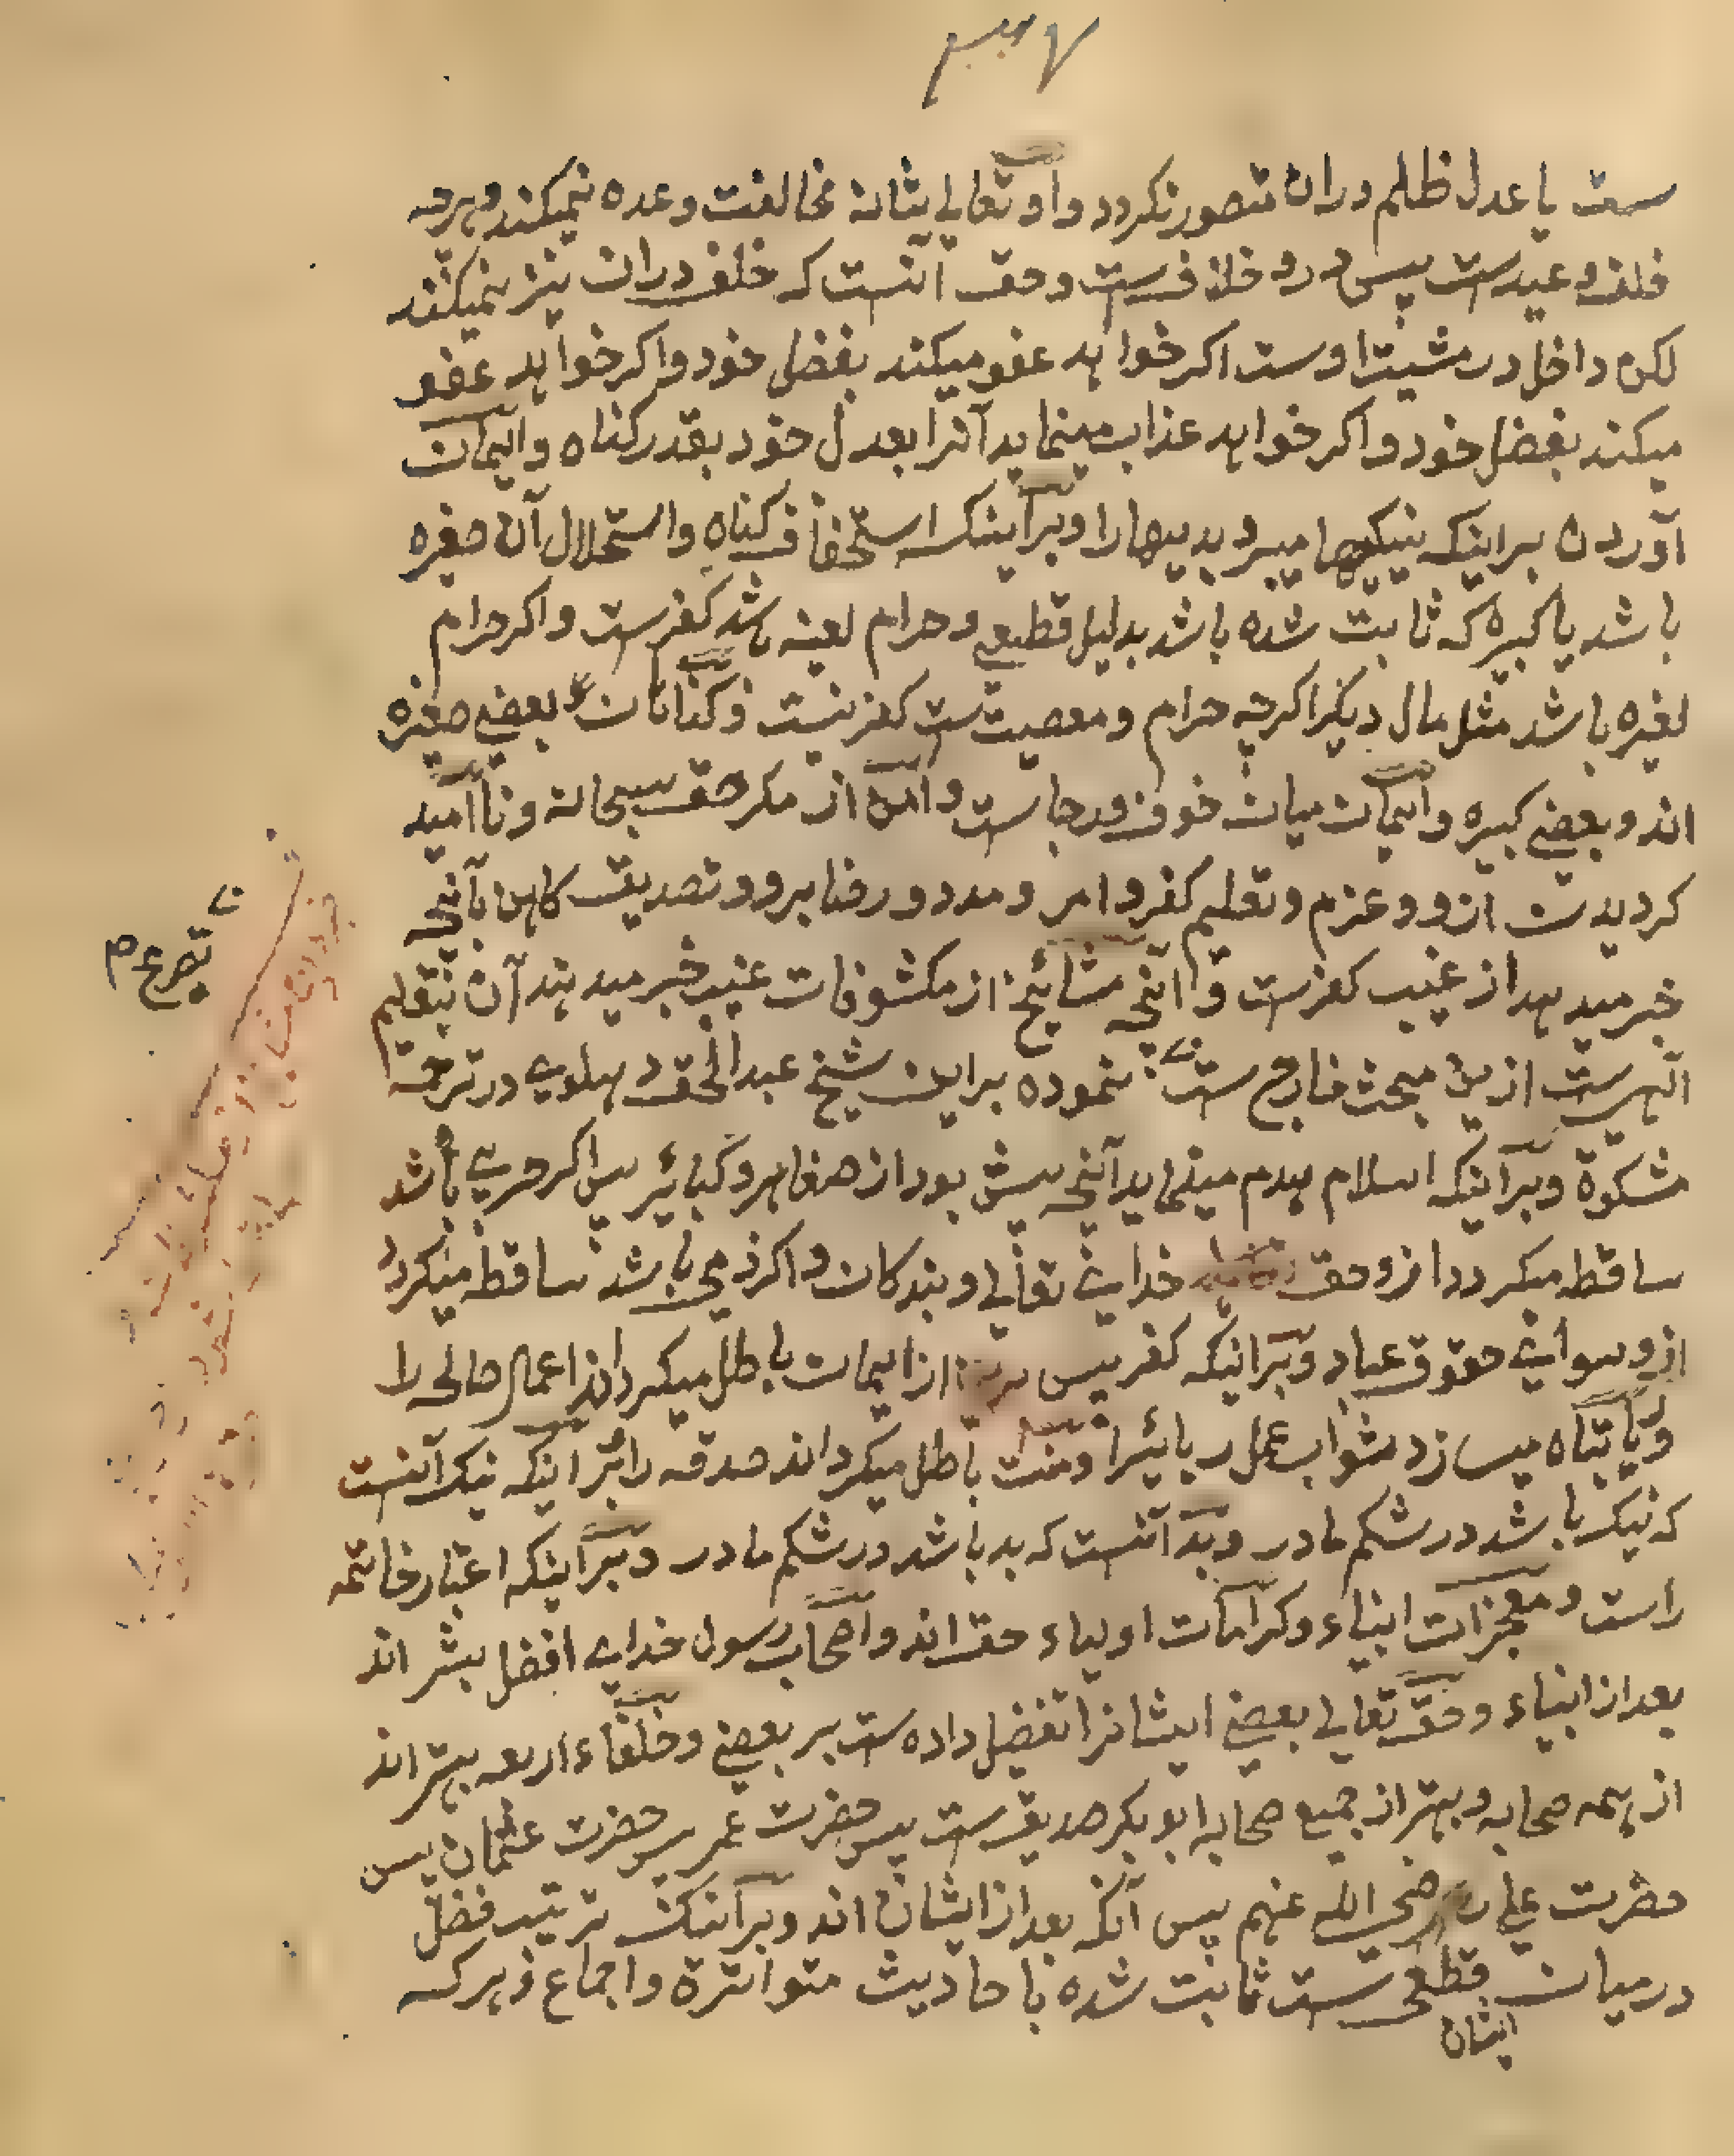 ست یا عدل ظلم دران متصور نکردد واو تعالی شانه مخالفت وعده نمیکند وهرچه
خلف وعیدست پس درو خلافست وحق آنست که خلف دران نیز نمیکند
لکن داخل در مشیت اوست اکر خواهد عفو میکند بفضل خود واکر خواهد عفو
میکند بفضل خود واکر خواهد عذاب مینماید آنرا بعدل خود بقدر کناه وایمان
آوردن براینکه نیکیها میبرد بدیها را وبراینکه استخفاف کناه واستحلال آن صغیره
باشد یا کبیره که ثابت شده باشد بدلیل قطعی وحرام لعینه باشد کفرست واکر حرام
لغیره باشد مثل مال دیکر اکرچه حرام ومعصیت ست کفر نیست وکناهان بعضی صغیره
اند وبعضی کبیره وایمان میان خوف ورجاست وامن از مکر حق سبحانه وناامید
کردیدن ازو وعزم وتعلیم کفر وامر ومدد ورضا برو وتصدیق کاهن بآنچه
خبر میدهد از غیب کفرست وآنچه مشائخ از مکشوفات غیب خبر میدهند آن بتعلیم
الهیست ازین مبحث خارج ست نموده براین شیخ عبدالحق دهلوی در ترجمه
تصریح م
مشکوة وبراینکه اسلام هدم مینماید آنچه پیش بود از صغایر وکبائر پس اکر حربی باشد
ساقط میکردد ازو حق خدای تعالی وبندکان واکر ذمی باشد ساقط میکردد
ازو سوای حقوق عباد وبراینکه کفر پس از ایمان باطل میکرداند اعمال صالحه را
وریا تباه میسازد ثواب عمل ریائیرا ومنت باطل میکرداند صدقه را وبراینکه نیک آنست
که نیک باشد در شکم مادر وبد آنست که بد باشد در شکم مادر وبراینکه اعتبار خاتمه
راست ومعجزات انبیاء وکرامات اولیاء حق اند واصحاب رسول خدای افضل بشر اند
بعد از انبیاء وحق تعالی بعضی ایشانرا تفضیل داده ست بر بعضی وخلفاء اربعه بهتر اند
از همه صحابه وبهتر از جمیع صحابه ابو بکر صدیق ست پس حضرت عمر پس حضرت عثمان پس
حضرت علی رضی الله عنهم پس آنکه بعد از ایشان اند وبراینکه ترتیب فضل
درمیان قطعی ست ثابت شده باحادیث متواترة واجماع وهرکه
ایشان